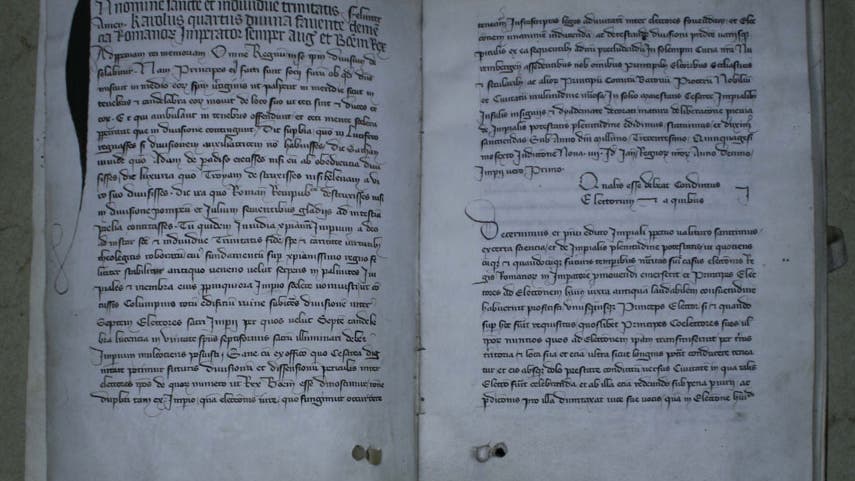 In nomine sancte et individue trinitatis feliciter
Amen Karolus quartus divina favente clemen
cia Romanorum Imperator semper Augustus et Boem Rex
Ad perpetuam rei memoriam Omne Regnum in se ipsum divisum de
solabitur Nam Principes eius facti sunt socii furum ob quod dominus
miscuit in medio eorum spiritum vertiginis ut palpitent in meridie sicut in
tenebris et candelabra eorum movit de loco suo ut ceci sint et duces ce
corum Et qui ambulant in tenebris offendunt et ceci mente scelera
perpetrant que in divisione contingunt Dic superbia quomodo in Lucifero
regnasses si divisionem auxiliatricem non habuisses Dic Sathan
invide quomodo Adam de paradiso eiecisses nisi eum ab obediencia divi
sisses dic luxuria quomodo Troyam destruxisses nisi helenam a vi
ro suo divisisses dic ira quomodo Romanam Rempublicam destruxisses nisi
in divisione Pompeium et Julium sevientibus gladiis ad intestina
prelia concitasses Tu quidem Invidia xpianum Imperium a deo
ad instar sancte et individue Trinitatis fide spe et caritate virtutibus
theologicis roboratum cuius fundamentum super xpianissimo regno fe
liciter stabilitur antiquo veneno velut serpens in palmites Im
periales et membra eius propinquiora Impio scelere vomuisti ut con
cussis Columpnis totum edificium ruine subiceres divisionem inter
Septem Electores sacri Imperii per quos velut Septem candela
bra lucencia in unitate spiritus septiformis sacrum illuminari debet
Imperium multociens posuisti Sane cum ex officio quo Cesarea dig
nitate potimur futuris divisionum et dissensionum periculis inter
electores ipsos de quorum numero ut Rex Boem esse dinoscimur ratione
duplici tam ex Imperio quam electionis iure quo fungimur occurrere
teneamur Infrascriptas leges ad unitatem inter electores fovendam et Elec
tionem unanimem inducendam ac detestande divisioni predicte variisque
periculis ex ea sequentibus aditum precludendum In solempni Curia nostra Nu
rembergen assedentibus nobis omnibus Principibus Electoribus Ecclesiasticis
et secularibus ac aliorum Principum Comitum Baronum Procerum Nobilium
et Civitatum multitudine numerosa In solio maiestatis Cesaree Imperialibus
Infulis insigniis et dyademate decorati matura deliberatione previa
de Imperialis potestatis plenitudine edidimus statuimus et duximus
sanciendas Sub Anno domini millesimo Trecentesimo Quinquagesi
mo sexto Indictione Nona IIII Id Jan Regnorum nostrorum Anno Decimo
Imperii vero Primo
Qualis esse debeat Conductus
Electorum et a quibus
Decernimus et presenti edicto Imperiali perpetuo valituro sanctimus
ex certa sciencia et de Imperialis plenitudine potestatis ut quociens
cumque et quandocumque futuris temporibus necessitas sive casus electionis Re
gis Romanorum in Imperatorem promovendi emerserit et Principes Elec
tores ad Electionem huiusmodi iuxta antiquam laudabilem consuetudinem
habuerint proficisci unusquisque Princeps Elector si et quando
super hoc fuerit requisitus quoslibet Principes Coelectores suos vel ip
sorum nuncios quos ad Electionem ipsam transmiserint per terras
territoria et loca sua et eciam ultra sicut longius poterit conducere tenea
tur et eis absque dolo prestare conductum versus Civitatem in qua talis
Electio fuerit celebranda et ab illa eciam redeundo sub pena periurii ac
perdicionis pro illa dumtaxat vice sue vocis quam in Electione huiusmodi